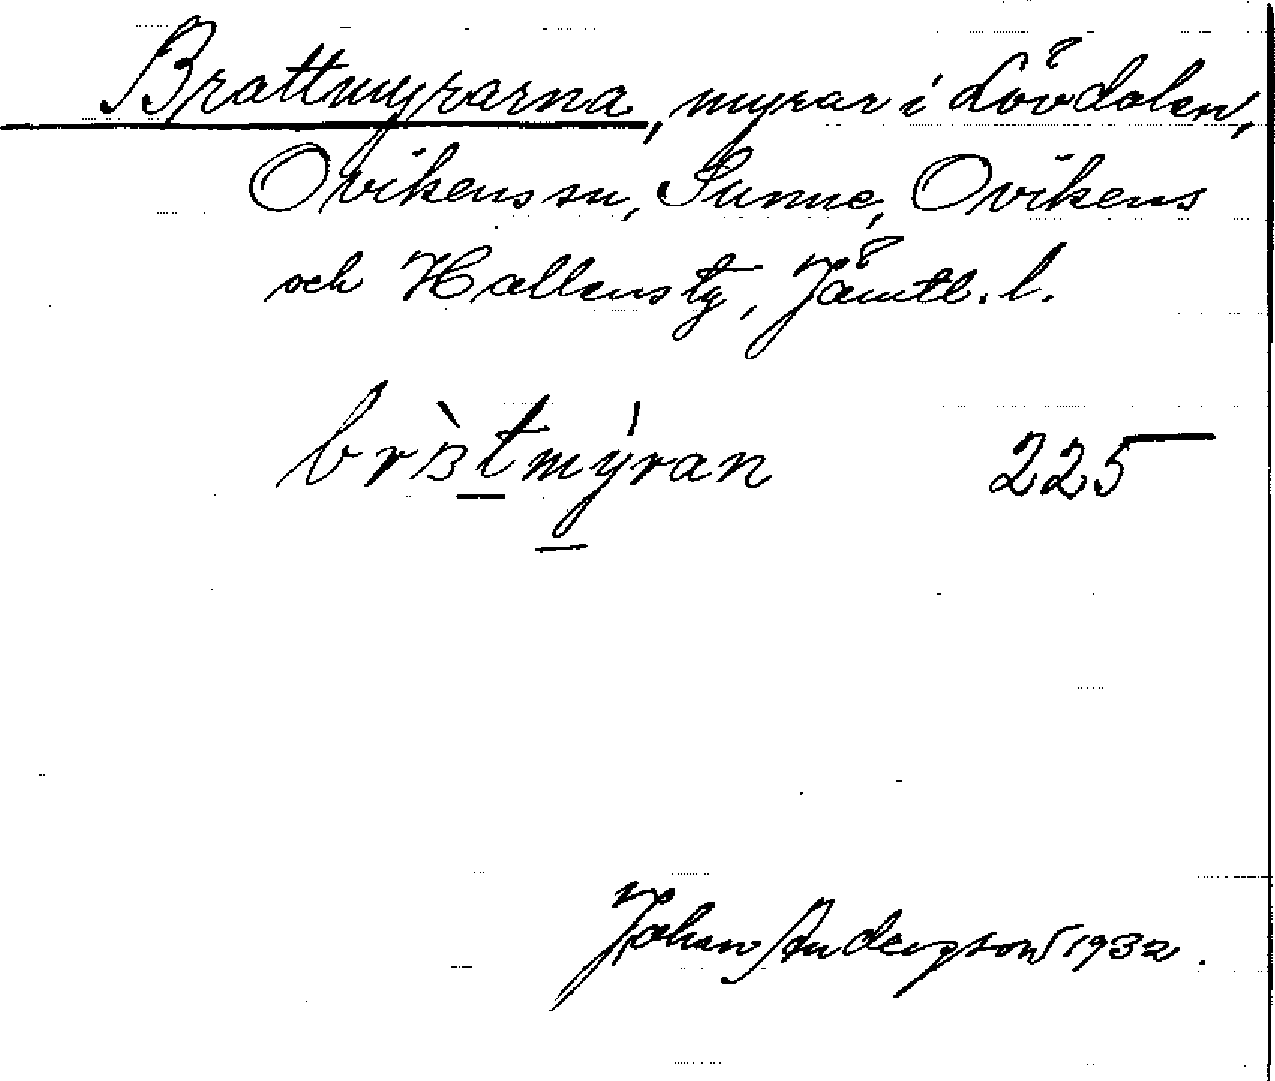 Brattmyrarna, myrar i Lövdalen,
Ovikens sn, Sunne, Ovikens
och Hallens tg, Jämtl. l.
225
Johan Anderson 1932.